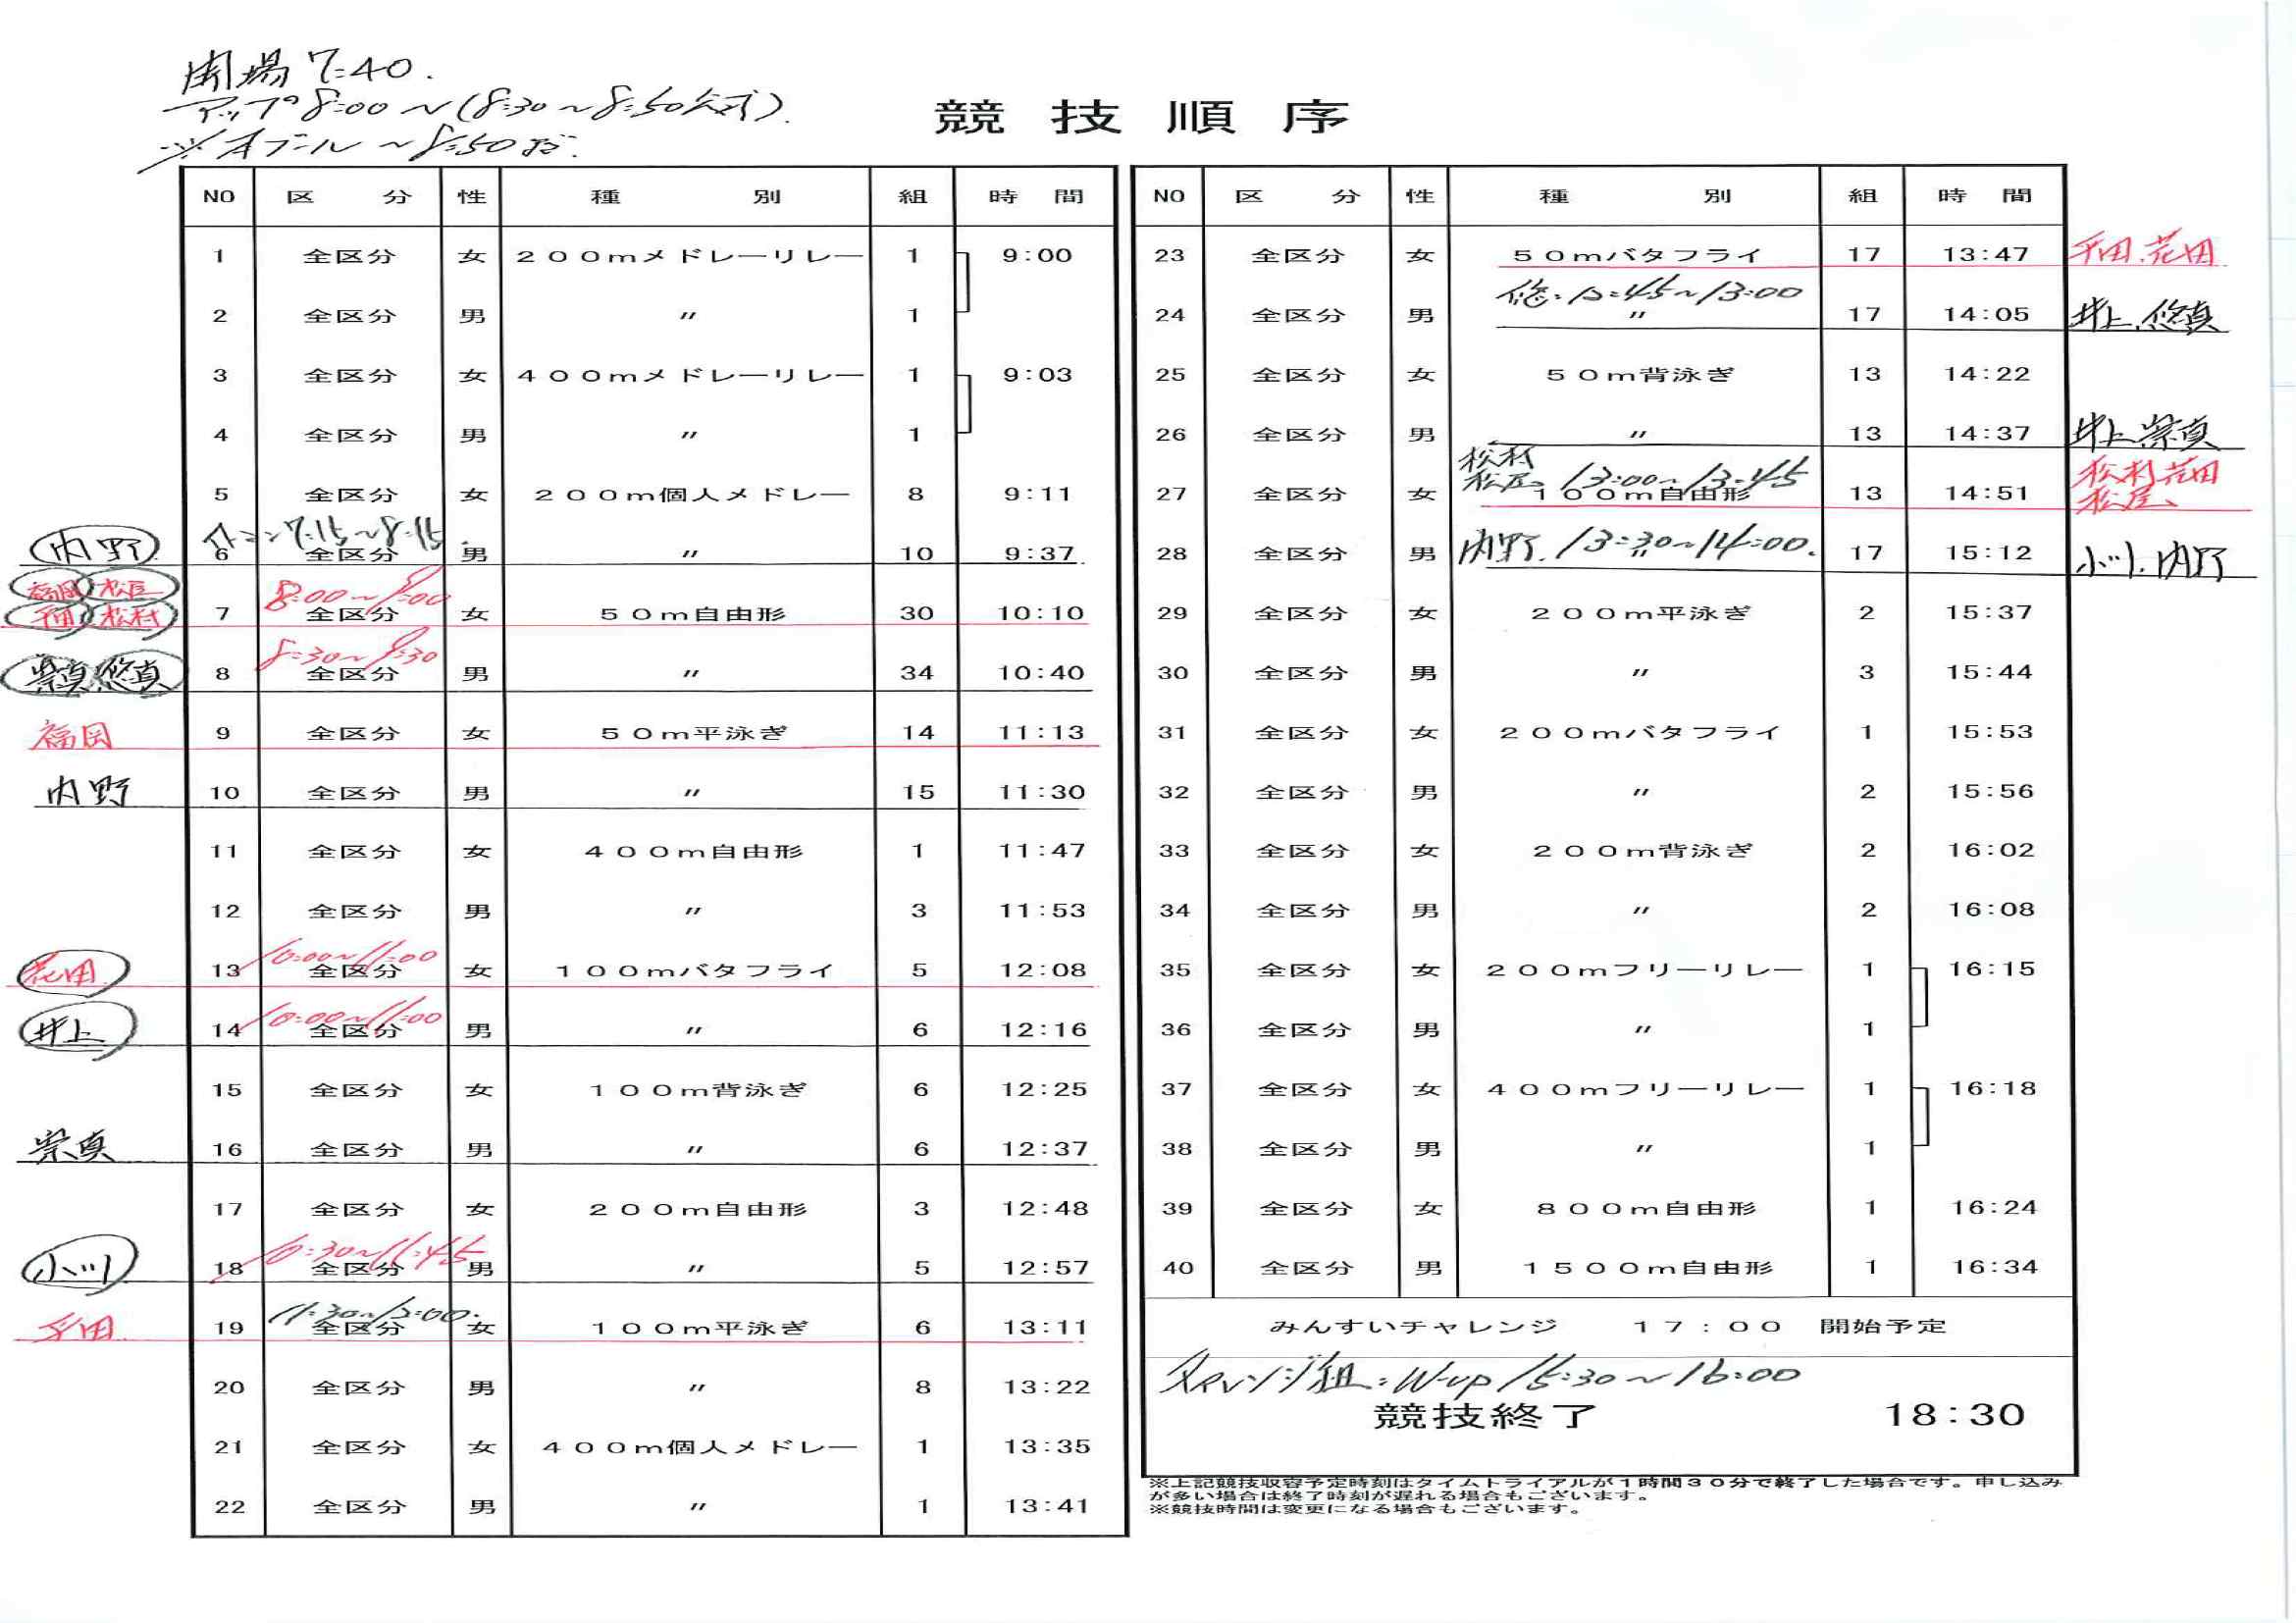 開場 7:40.
アップ 8:00〜(8:30〜8:50公式).
※本プール〜8:50まで.
競技順序
NO 区分 性 種別 組 時間
1 全区分 女 200mメドレーリレー 1 9:00
2 全区分 男 〃 1
3 全区分 女 400mメドレーリレー 1 9:03
4 全区分 男 〃 1
5 全区分 女 200m個人メドレー 8 9:11
7:15〜8:15.
内野 6 全区分 男 〃 10 9:37
福岡 松尾 8:00〜9:00
平田 松村 7 全区分 女 50m自由形 30 10:10
8:30〜9:30
崇真 悠真 8 全区分 男 〃 34 10:40
福岡 9 全区分 女 50m平泳ぎ 14 11:13
内野 10 全区分 男 〃 15 11:30
11 全区分 女 400m自由形 1 11:47
12 全区分 男 〃 3 11:53
10:00〜11:00
花田 13 全区分 女 100mバタフライ 5 12:08
10:00〜11:00
井上 14 全区分 男 〃 6 12:16
15 全区分 女 100m背泳ぎ 6 12:25
崇真 16 全区分 男 〃 6 12:37
17 全区分 女 200m自由形 3 12:48
10:30〜11:45
小川 18 全区分 男 〃 5 12:57
11:30〜12:00.
平田 19 全区分 女 100m平泳ぎ 6 13:11
20 全区分 男 〃 8 13:22
21 全区分 女 400m個人メドレー 1 13:35
22 全区分 男 〃 1 13:41
NO 区分 性 種別 組 時間
23 全区分 女 50mバタフライ 17 13:47 平田.花田
悠:12:45〜13:00
24 全区分 男 〃 17 14:05 井上.悠真
25 全区分 女 50m背泳ぎ 13 14:22
26 全区分 男 〃 13 14:37 井上 崇真
松村 松村 花田
松尾 13:00〜13:45
27 全区分 女 100m自由形 13 14:51 松尾
内野. 13:30〜14:00.
28 全区分 男 〃 17 15:12 小川.内野
29 全区分 女 200m平泳ぎ 2 15:37
30 全区分 男 〃 3 15:44
31 全区分 女 200mバタフライ 1 15:53
32 全区分 男 〃 2 15:56
33 全区分 女 200m背泳ぎ 2 16:02
34 全区分 男 〃 2 16:08
35 全区分 女 200mフリーリレー 1 16:15
36 全区分 男 〃 1
37 全区分 女 400mフリーリレー 1 16:18
38 全区分 男 〃 1
39 全区分 女 800m自由形 1 16:24
40 全区分 男 1500m自由形 1 16:34
みんすいチャレンジ 17:00 開始予定
チャレンジ組:W-up 15:30〜16:00
競技終了 18:30
※上記競技収容予定時刻はタイムトライアルが1時間30分で終了した場合です。申し込み
が多い場合は終了時刻が遅れる場合もございます。
※競技時間は変更になる場合もございます。